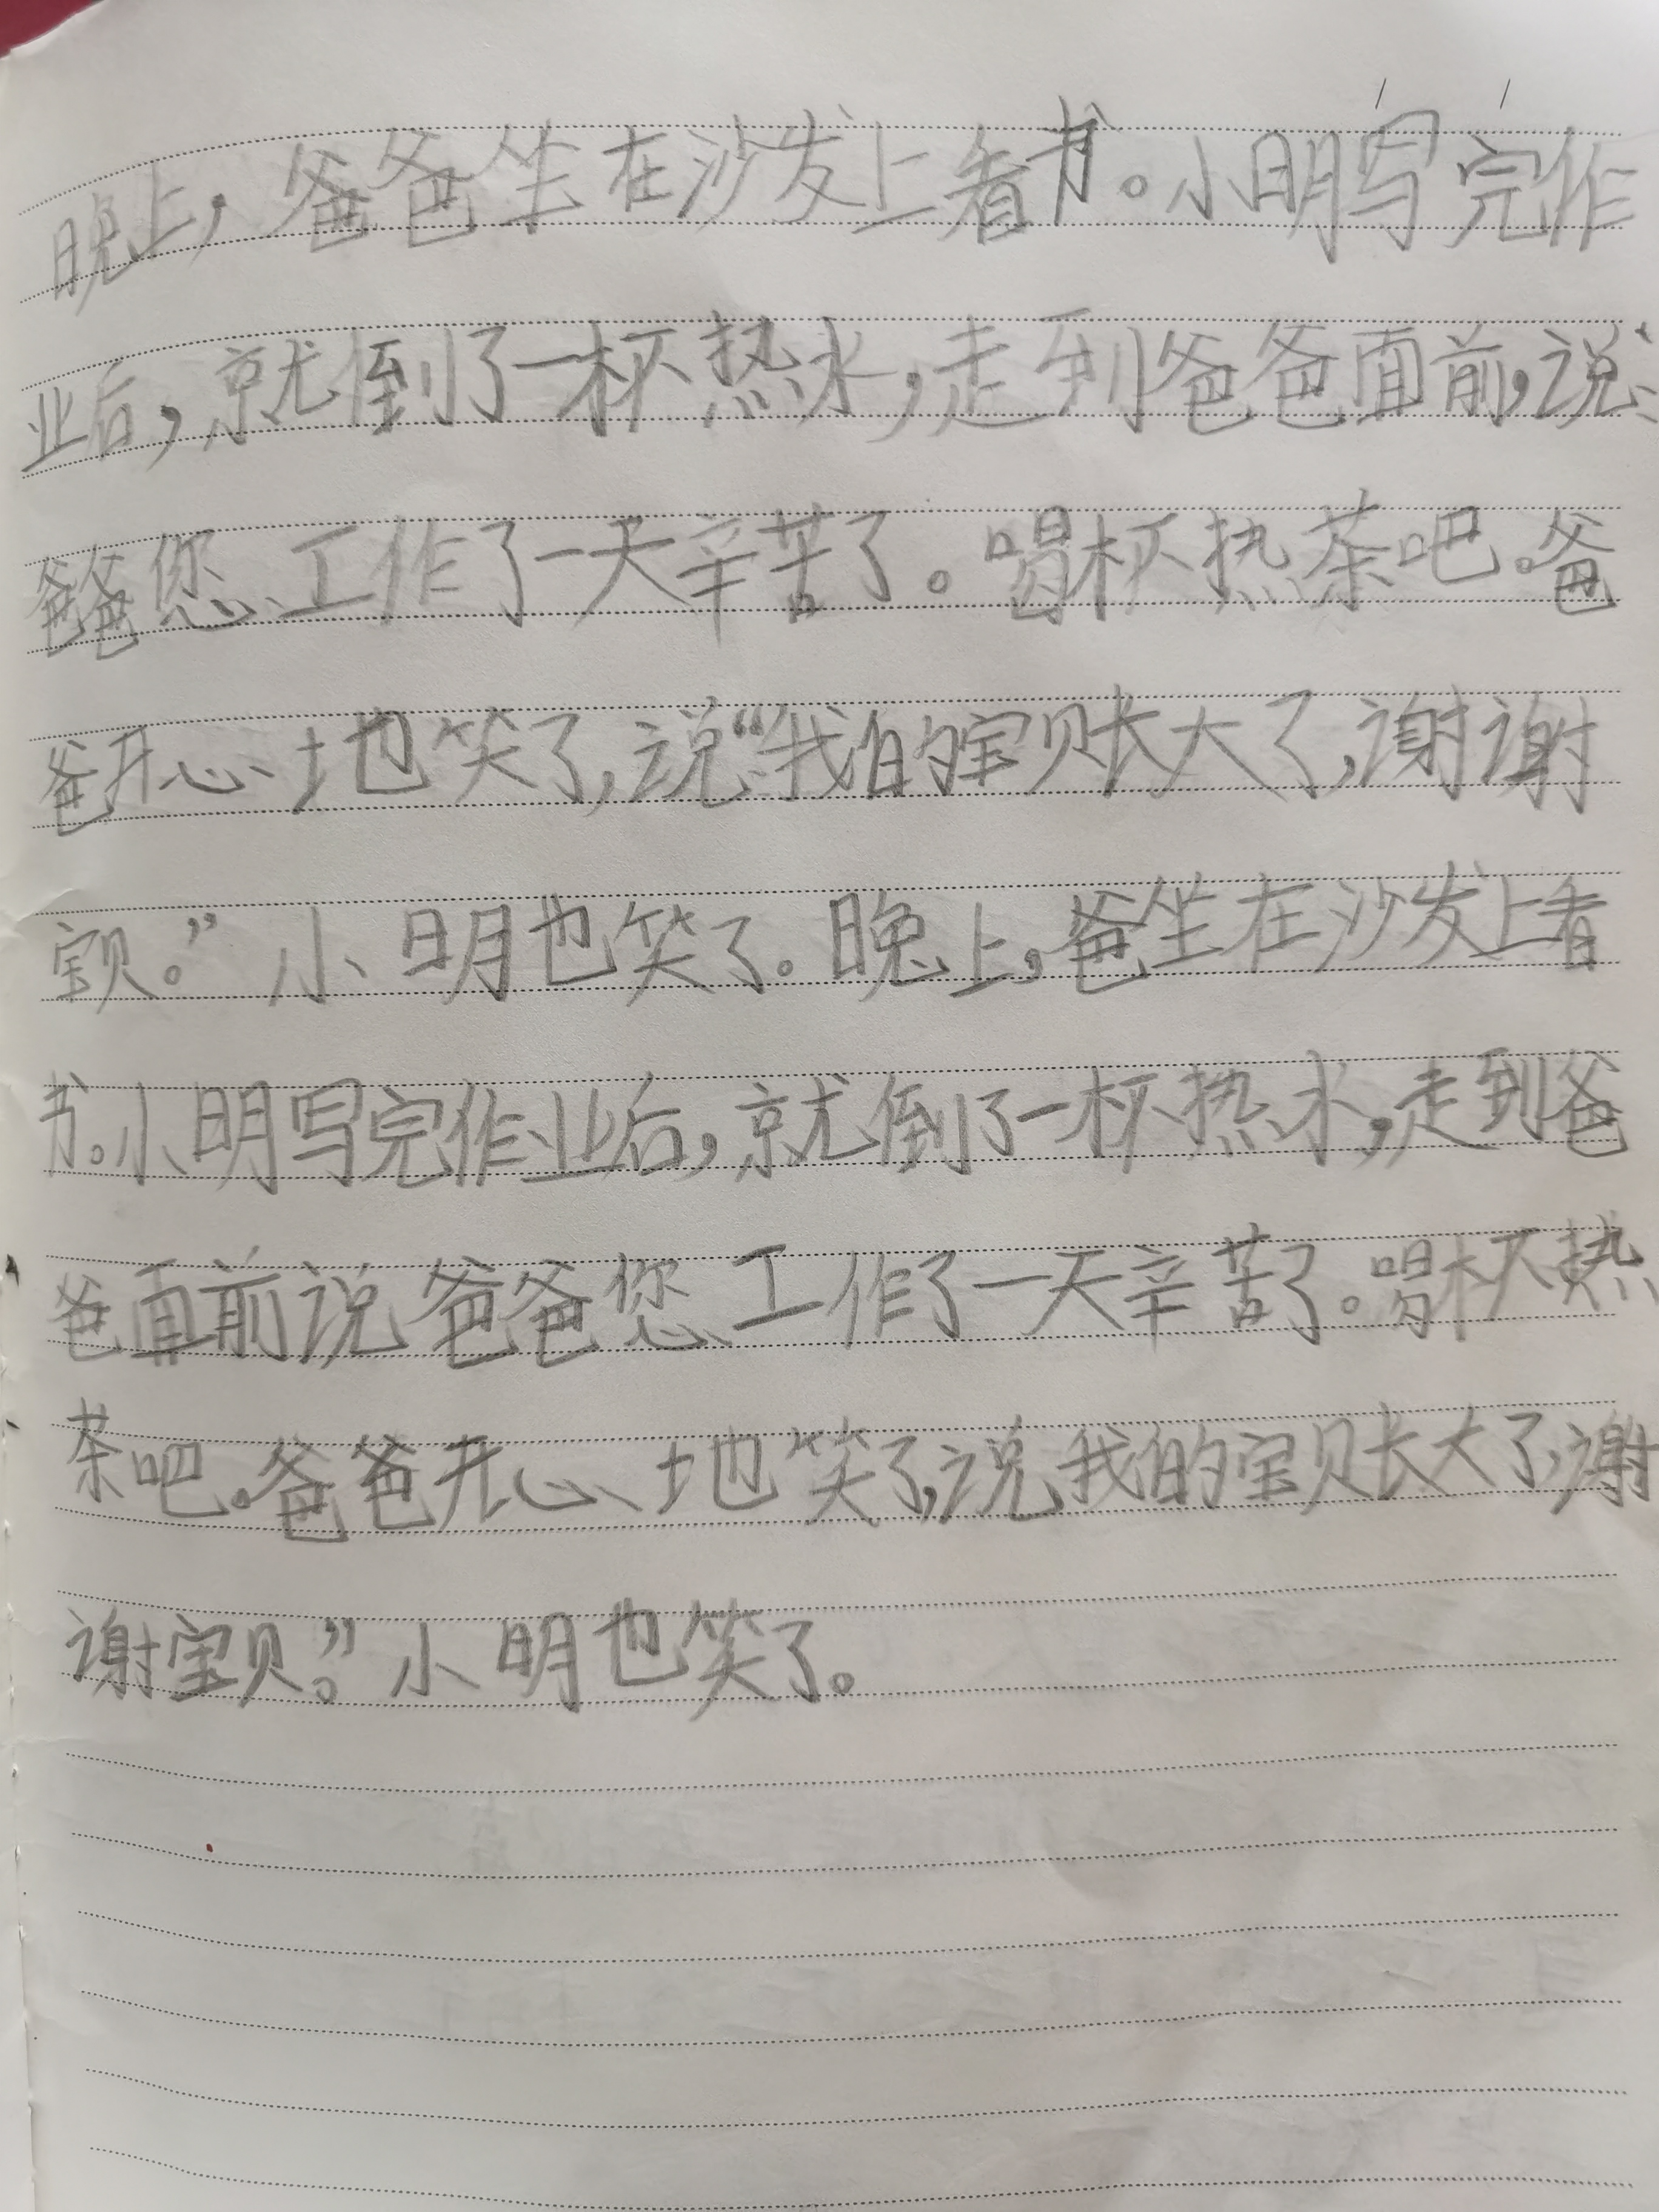 晚上，爸爸坐在沙发上看书。小明写完作
业后，就倒了一杯热水，走到爸爸面前，说：
爸爸您工作了一天辛苦了。喝杯热茶吧。爸
爸开心地笑了，说：“我的宝贝长大了，谢谢
宝贝。”小明也笑了。晚上，爸坐在沙发上看
书。小明写完作业后，就倒了一杯热水，走到爸
爸面前说爸爸您工作了一天辛苦了。喝杯热
茶吧。爸爸开心地笑了，说我的宝贝长大了，谢
谢宝贝。”小明也笑了。